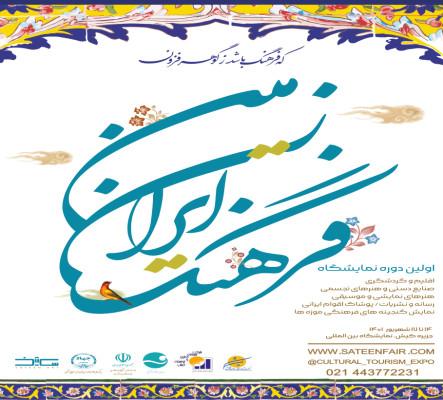 که فرهنگ باشد ز گوهر فزون
فرهنگ ایران زمین
اولین دوره نمایشگاه
اقلیم و گردشگری
صنایع دستی و هنرهای تجسمی
هنرهای نمایشی و موسیقی
رسانه و نشریات / پوشاک اقوام ایرانی
نمایش گنجینه های فرهنگی موزه ها
جزیره کیش، نمایشگاه بین المللی
WWW.SATEENFAIR.COM
@CULTURAL_TOURISM_EXPO
021 443772231